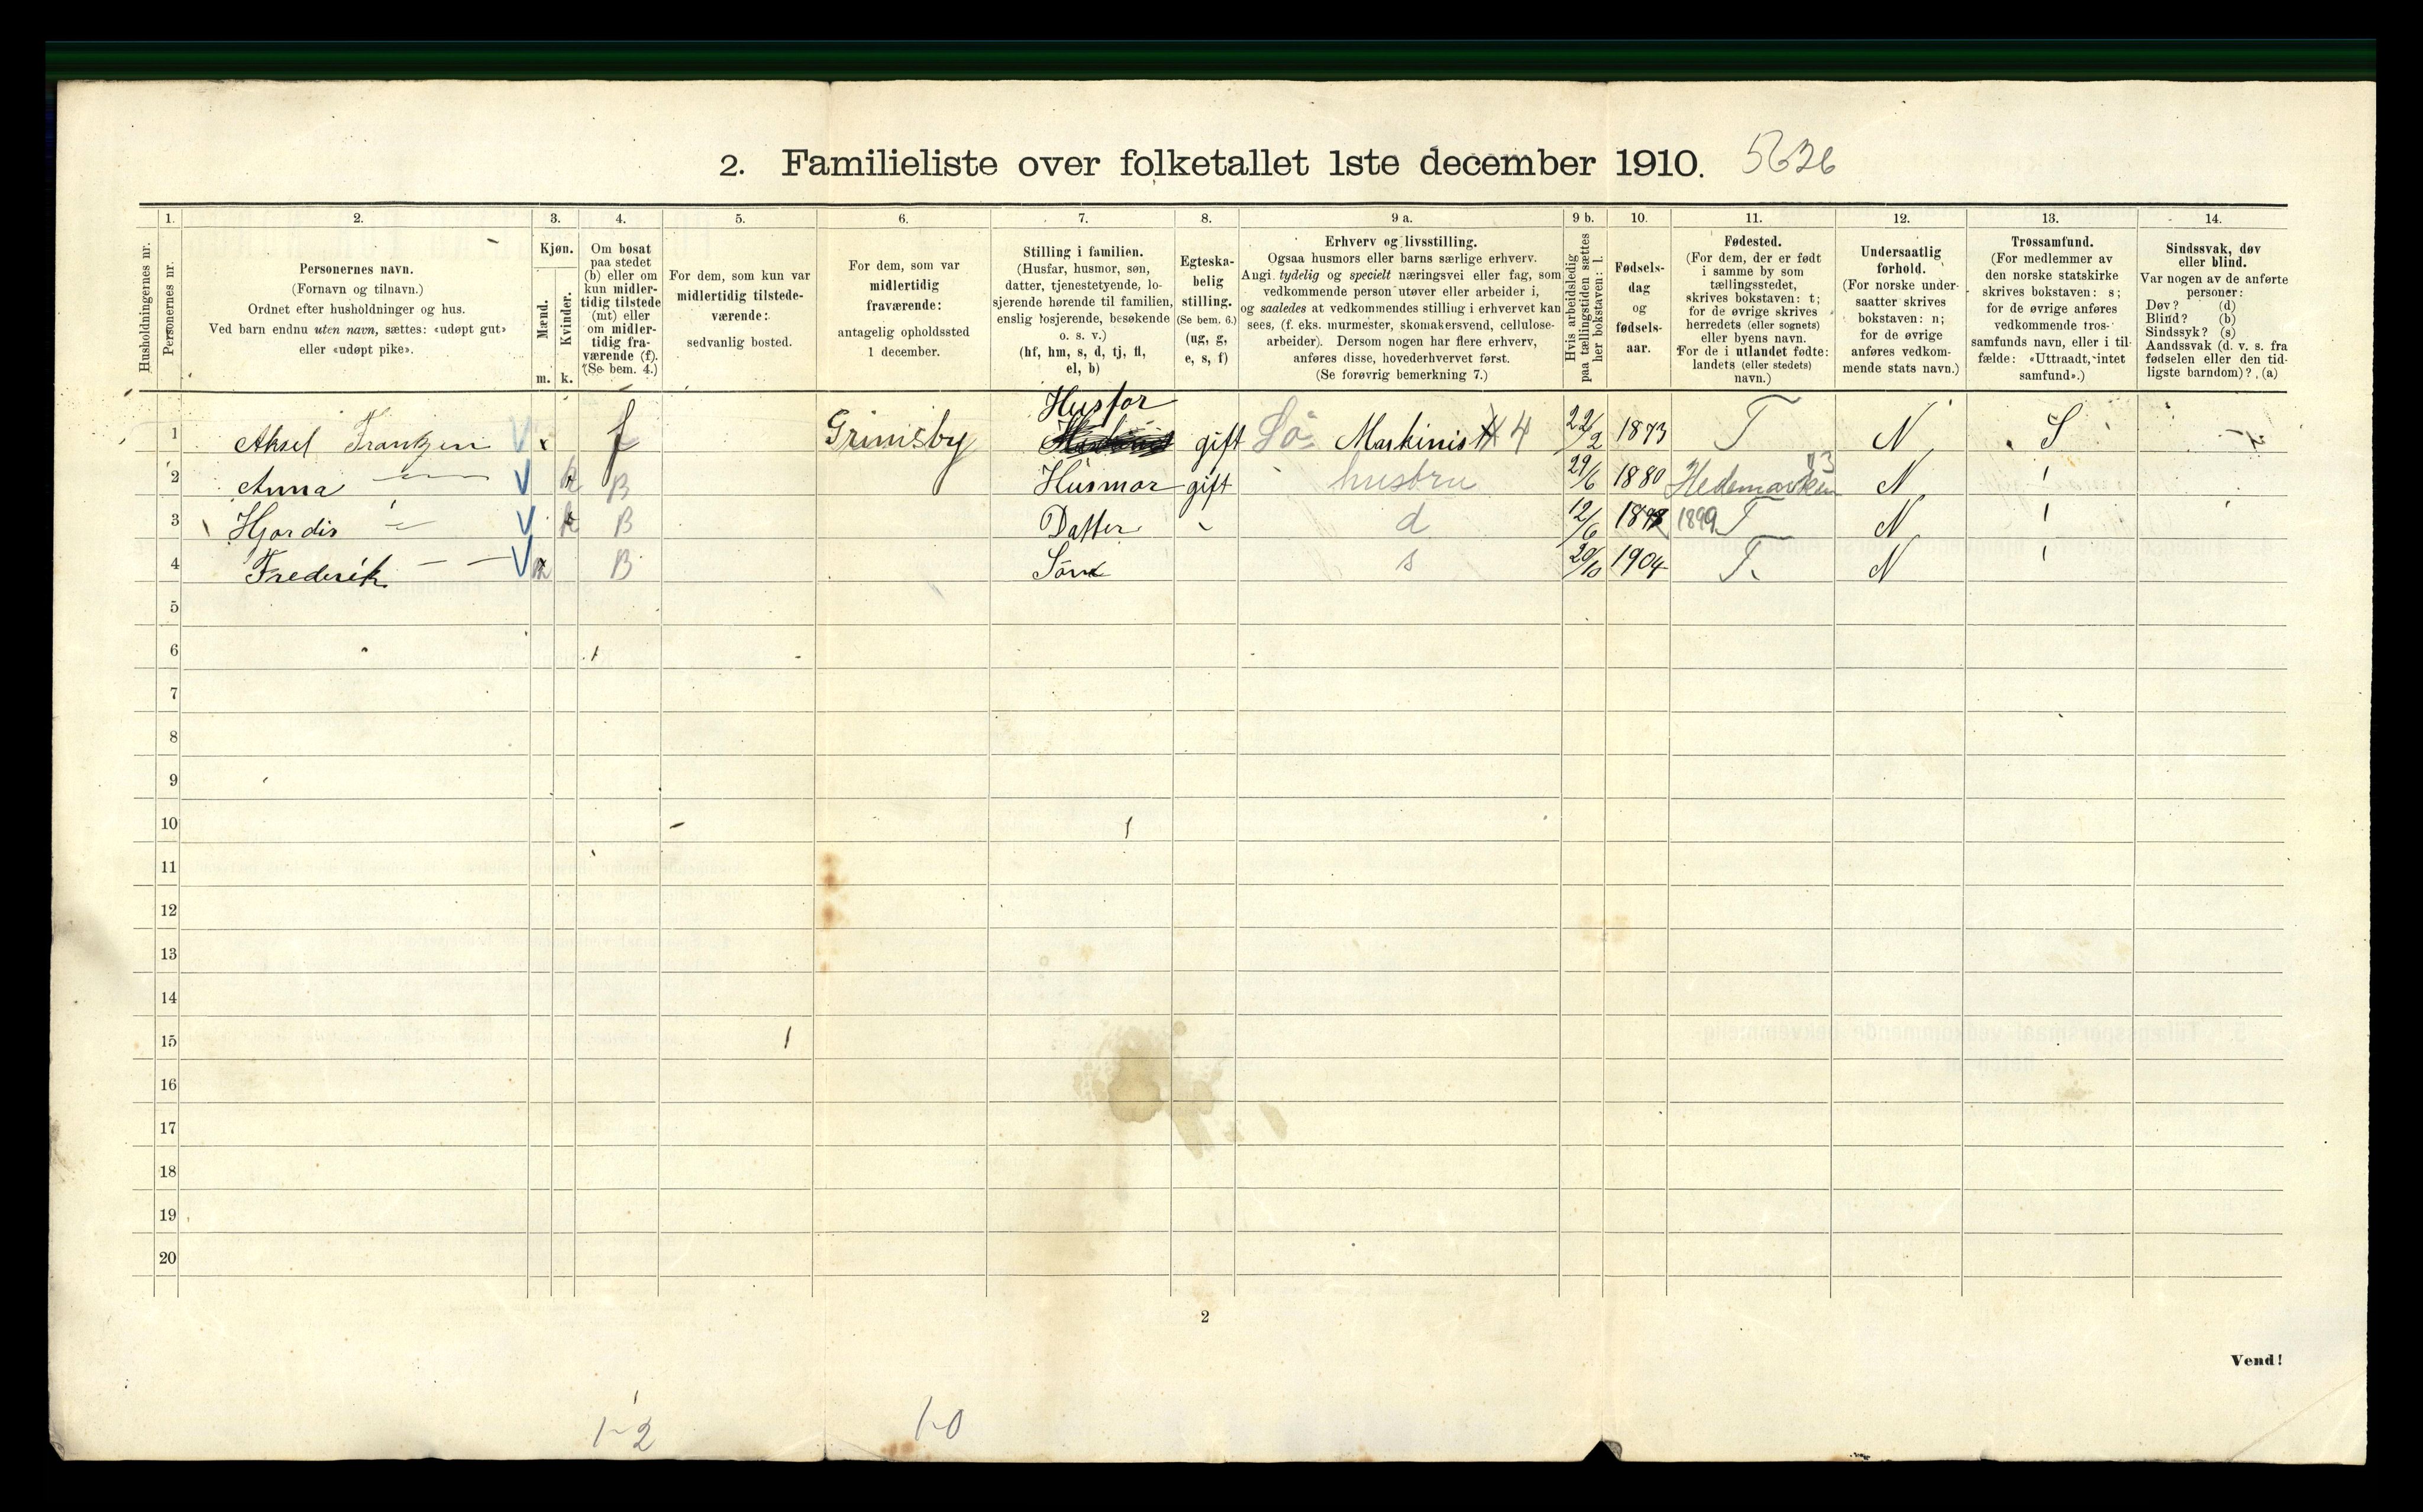 2. Familieliste over folketallet 1ste december 1910. 5626
Husholdningernes nr.
1.
Personernes nr.
2.
Personernes navn.
(Fornavn og tilnavn.)
Ordnet efter husholdninger og hus.
Ved barn endnu uten navn, sættes: «udøpt gut»
eller «udøpt pike».
3.
Kjøn.
Mænd.
m.
Kvinder.
k.
4.
Om bosat
paa stedet
(b) eller om
kun midler-
tidig tilstede
(mt) eller
om midler-
tidig fra-
værende (f).
(Se bem. 4.)
5.
For dem, som kun var
midlertidig tilstede-
værende:
sedvanlig bosted.
6.
For dem, som var
midlertidig
fraværende:
antagelig opholdssted
1 december.
7.
Stilling i familien.
(Husfar, husmor, søn,
datter, tjenestetyende, lo-
sjerende hørende til familien,
enslig losjerende, besøkende
o. s. v.)
(hf, hm, s, d, tj, fl,
el, b)
8.
Egteska-
belig
stilling.
(Se bem. 6.)
(ug, g,
e, s, f)
9 a.
Erhverv og livsstilling.
Ogsaa husmors eller barns særlige erhverv.
Angi tydelig og specielt næringsvei eller fag, som
vedkommende person utøver eller arbeider i,
og saaledes at vedkommendes stilling i erhvervet kan
sees, (f. eks. murmester, skomakersvend, cellulose-
arbeider). Dersom nogen har flere erhverv,
anføres disse, hovederhvervet først.
(Se forøvrig bemerkning 7.)
9 b.
Hvis arbeidsledig
paa tællingstiden sættes
her bokstaven: l.
10.
Fødsels-
dag
og
fødsels-
aar.
11.
Fødested.
(For dem, der er født
i samme by som
tællingsstedet,
skrives bokstaven: t;
for de øvrige skrives
herredets (eller sognets)
eller byens navn.
For de i utlandet fødte:
landets (eller stedets)
navn.)
12.
Undersaatlig
forhold.
(For norske under-
saatter skrives
bokstaven: n;
for de øvrige
anføres vedkom-
mende stats navn.)
13.
Trossamfund.
(For medlemmer av
den norske statskirke
skrives bokstaven: s;
for de øvrige anføres
vedkommende tros-
samfunds navn, eller i til-
fælde: «Uttraadt, intet
samfund».)
14.
Sindssvak, døv
eller blind.
Var nogen av de anførte
personer:
Døv? (d)
Blind? (b)
Sindssyk? (s)
Aandssvak (d. v. s. fra
fødselen eller den tid-
ligste barndom)? (a)
1 Aksel Frantzen V x f Grimsby Husfar gift Sö- Maskinist 4 22/2 1873 T N S
2 Anna — V k B Husmor gift hustru 29/6 1880 Hedemarken 03 N
3 Hjordis — V k B Datter d 12/6 1898 1899 T N
4 Frederik — V m B Sön s 20/10 1904 T. N
5
6
7
8
9
10
11
12
13
14
15
16
17
18
19
20
2
Vend!
1-2 1-0